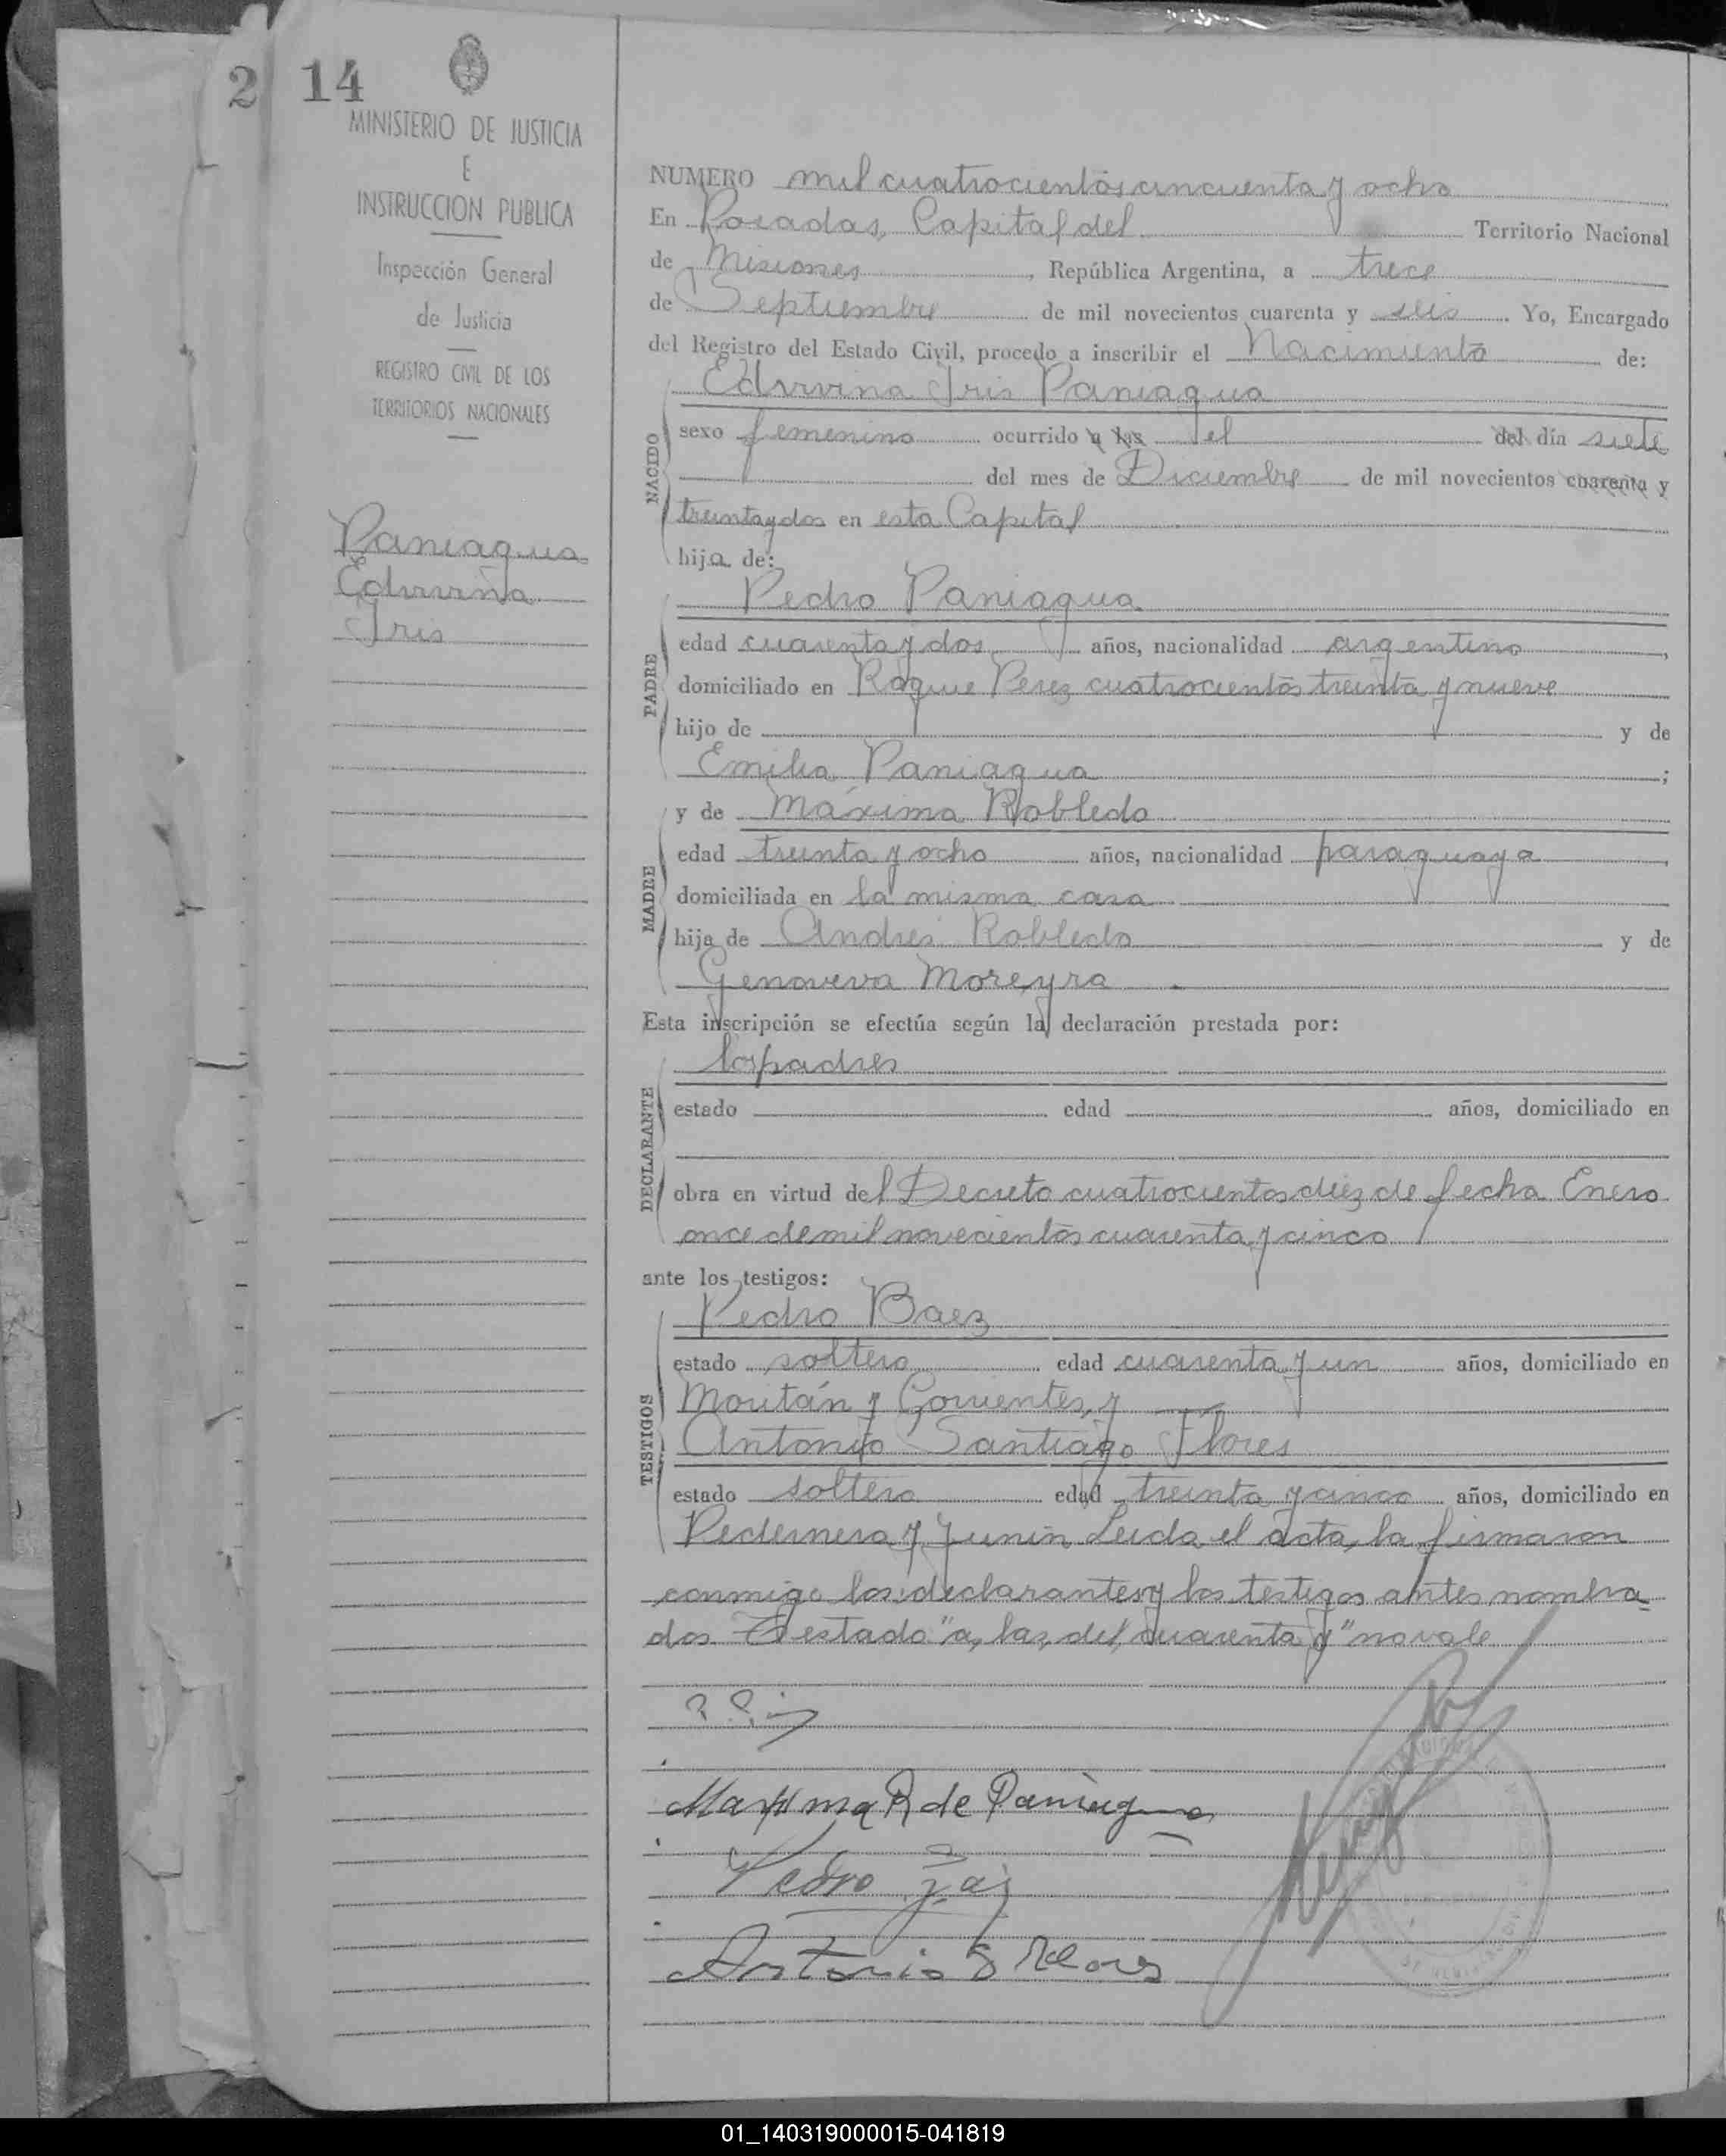 2 14
MINISTERIO DE JUSTICIA
E
INSTRUCCION PUBLICA
Inspección General
de Justicia
REGISTRO CIVIL DE LOS
TERRITORIOS NACIONALES
Paniagua
Edwina
Iris
NUMERO mil cuatrocientos cincuenta y ocho
En Posadas, Capital del Territorio Nacional
de Misiones, República Argentina, a trece
de Septiembre de mil novecientos cuarenta y seis. Yo, Encargado
del Registro del Estado Civil, procedo a inscribir el Nacimiento de:
Edwina Iris Paniagua
NACIDO
sexo femenino ocurrido a las el del día siete
del mes de Diciembre de mil novecientos cuarenta y
treinta y dos en esta Capital
hija de:
Pedro Paniagua
PADRE
edad cuarenta y dos años, nacionalidad argentino,
domiciliado en Roque Perez cuatrocientos treinta y nueve
hijo de y de
Emilia Paniagua ;
y de Máxima Robledo
MADRE
edad treinta y ocho años, nacionalidad paraguaya,
domiciliada en la misma casa
hija de Andrés Robledo y de
Genoveva Moreyra
Esta inscripción se efectúa según la declaración prestada por:
los padres
DECLARANTE
estado edad años, domiciliado en
obra en virtud del Decreto cuatrocientos diez de fecha Enero
once de mil novecientos cuarenta y cinco
ante los testigos:
Pedro Baez
TESTIGOS
estado soltero edad cuarenta y un años, domiciliado en
Moritán y Corrientes, y
Antonio Santiago Flores
estado soltero edad treinta y cinco años, domiciliado en
Pedernera y Junin Leida el acta, la firmaron
conmigo los declarantes y los testigos antes nombra
dos Testado "a, las, del, cuarenta y" no vale
Maxima R de Paniagua
Pedro
Antonio S Flores
01_140319000015-041819